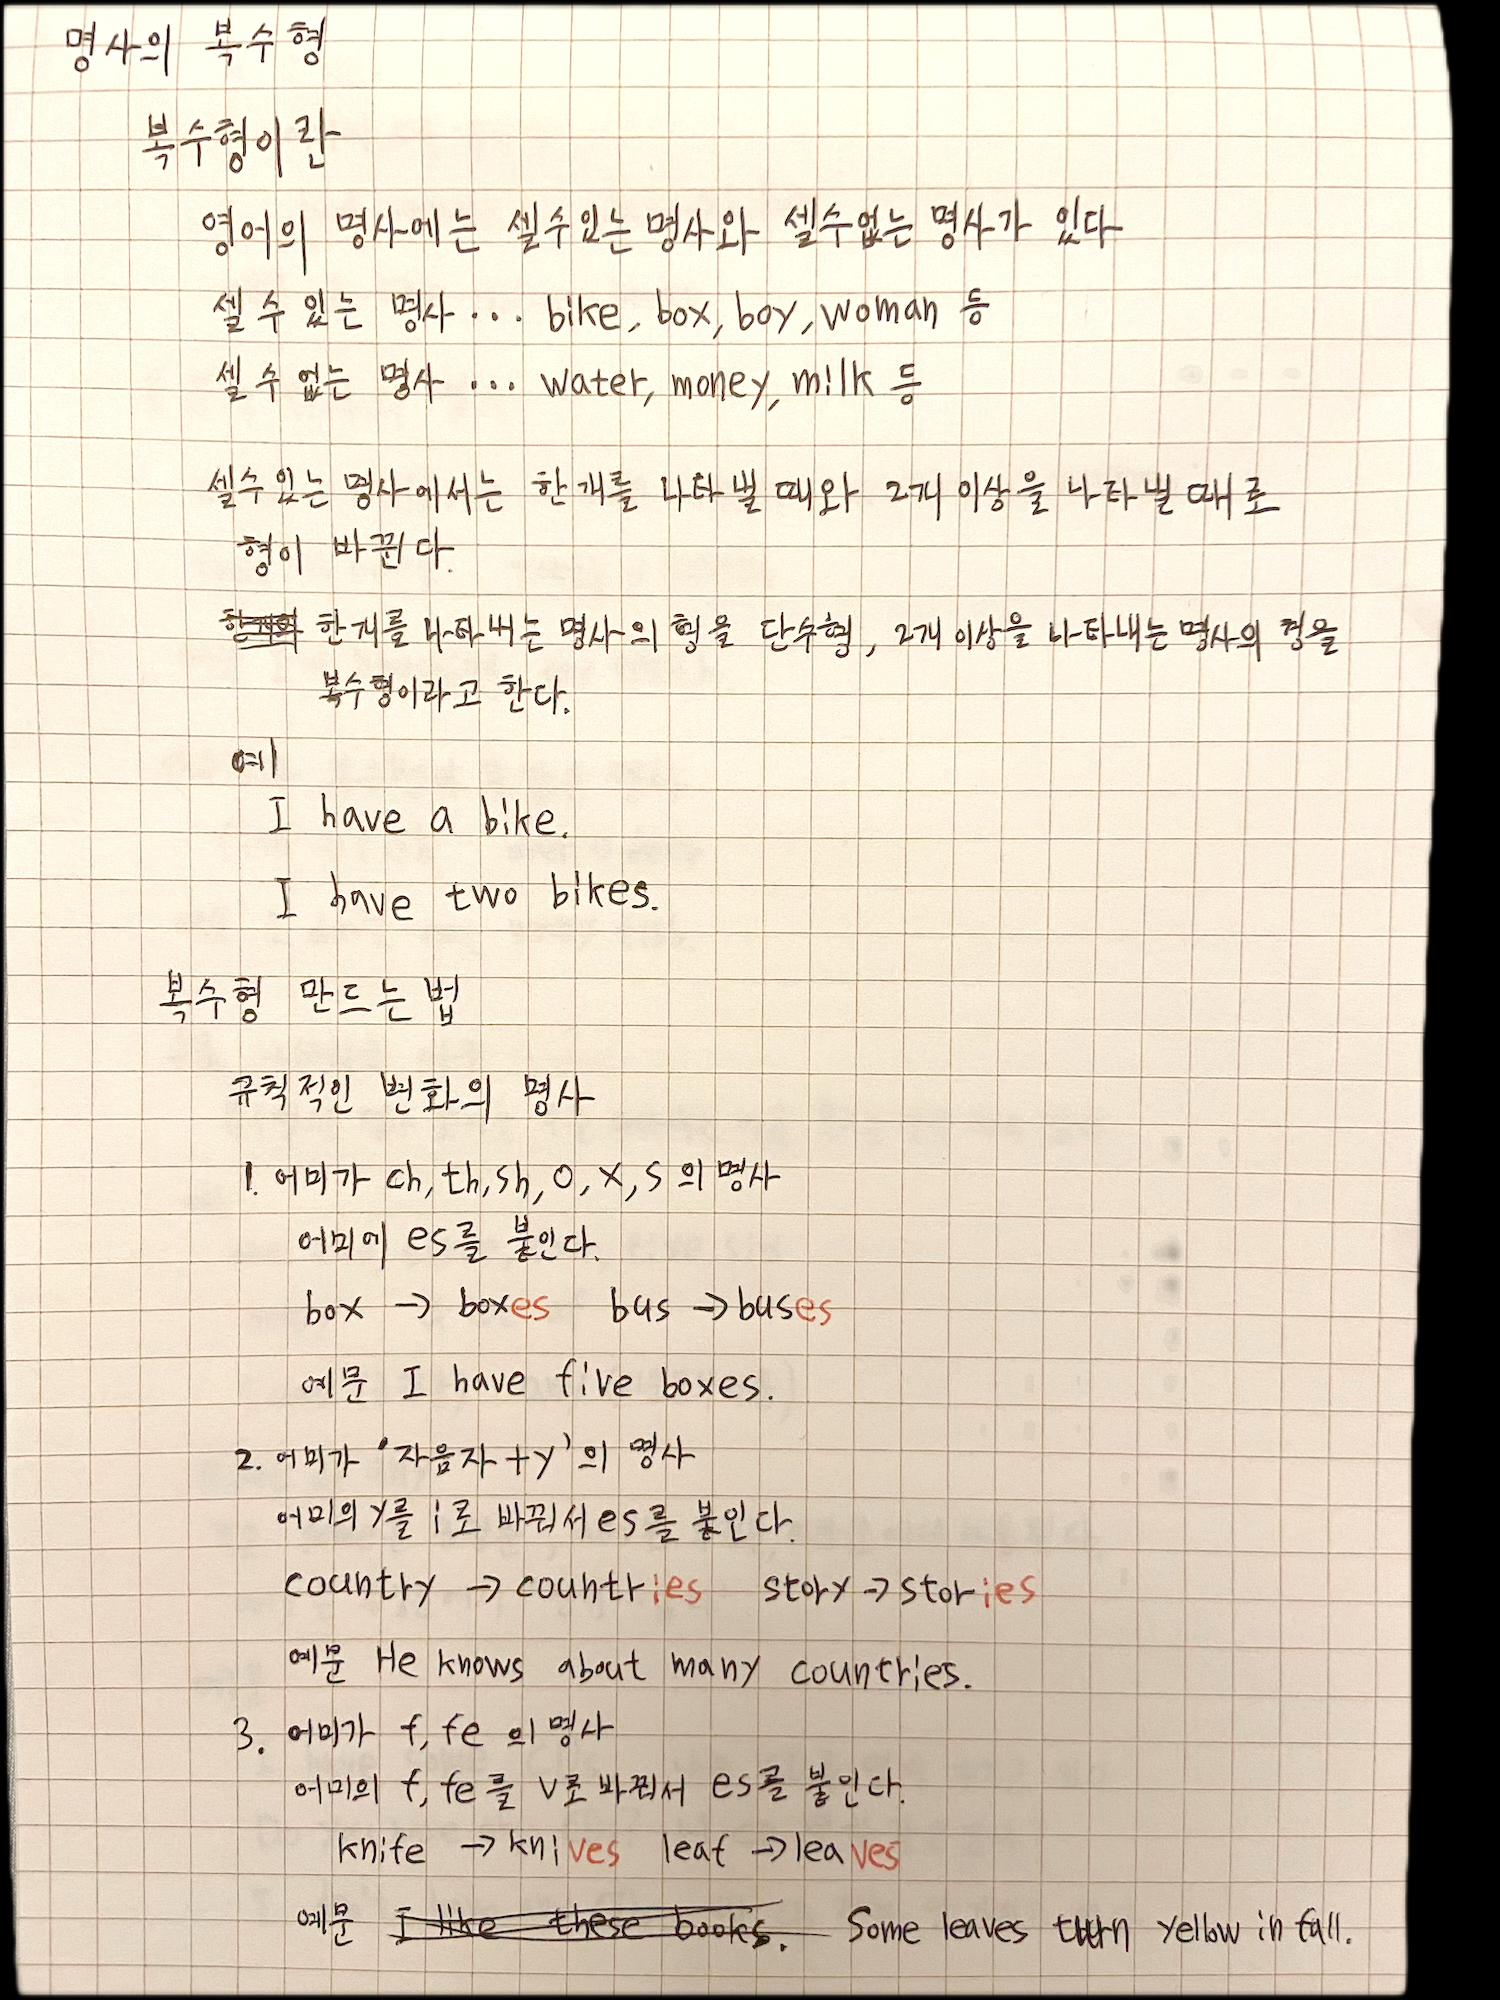 명사의 복수형
복수형이란
영어의 명사에는 셀수있는 명사와 셀수없는 명사가 있다
셀 수 있는 명사 ... bike, box, boy, woman 등
셀 수 없는 명사 ... water, money, milk 등
셀수있는 명사에서는 한개를 나타낼 때와 2개 이상을 나타낼 때로
형이 바뀐다.
한개를 나타내는 명사의 형을 단수형, 2개 이상을 나타내는 명사의 형을
복수형이라고 한다.
예
I have a bike.
I have two bikes.
복수형 만드는 법
규칙적인 변화의 명사
1. 어미가 ch, th, sh, o, x, s 의 명사
어미에 es를 붙인다.
box → boxes bus → buses
예문 I have five boxes.
2. 어미가 '자음자+y'의 명사
어미의 y를 i로 바꿔서 es를 붙인다.
country → countries story → stories
예문 He knows about many countries.
3. 어미가 f, fe 의 명사
어미의 f, fe를 v로 바꿔서 es를 붙인다.
knife → knives leaf → leaves
예문 I like these books. Some leaves turn yellow in fall.